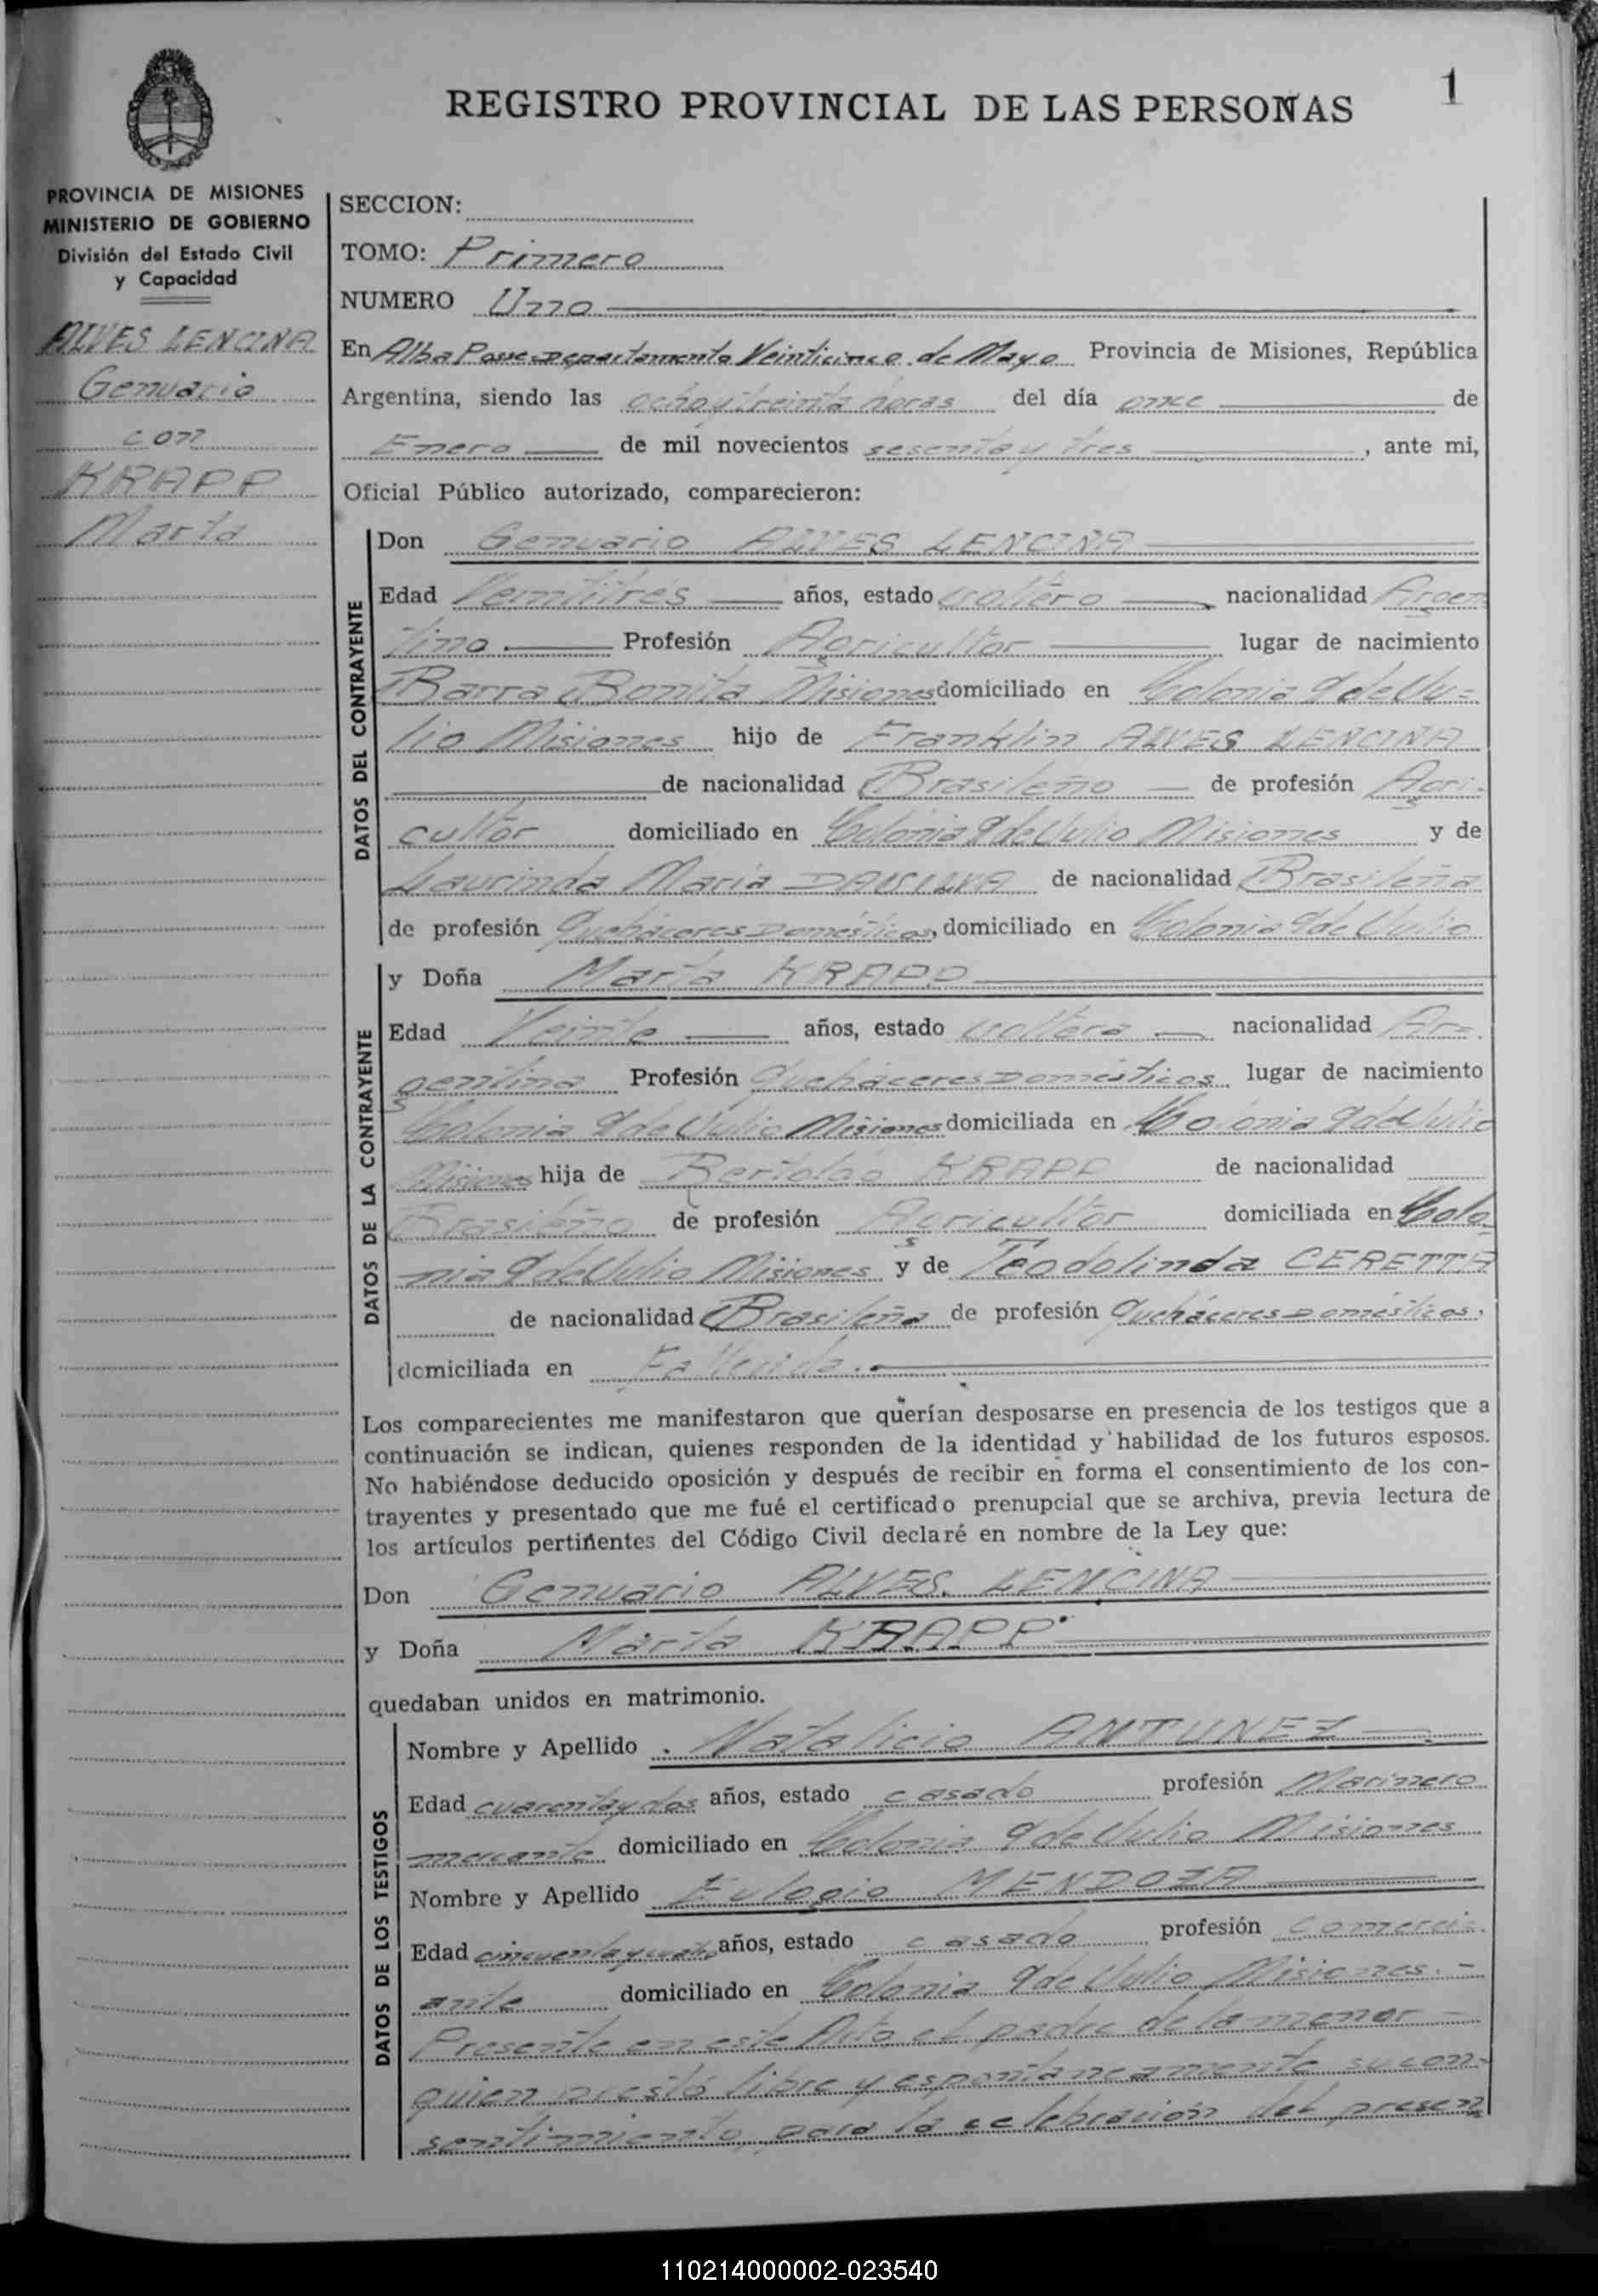 1
REGISTRO PROVINCIAL DE LAS PERSONAS
PROVINCIA DE MISIONES
MINISTERIO DE GOBIERNO
División del Estado Civil
y Capacidad
ALVES LENCINA
Genuario
con
KRAPP
Marta
SECCION:
TOMO: Primero
NUMERO Uno
En Alba Posse Departamento Veinticinco de Mayo Provincia de Misiones, República
Argentina, siendo las ocho y treinta horas del día once de
Enero de mil novecientos sesenta y tres, ante mi,
Oficial Público autorizado, comparecieron:
DATOS DEL CONTRAYENTE
Don Genuario ALVES LENCINA
Edad Veintitrés años, estado soltero nacionalidad Argen
tino Profesión Agricultor lugar de nacimiento
Barra Bonita Misiones domiciliado en Colonia 9 de Ju=
lio Misiones hijo de Franklin ALVES LENCINA
de nacionalidad Brasileño de profesión Agri-
cultor domiciliado en Colonia 9 de Julio Misiones y de
Laurinda María DA SILVA de nacionalidad Brasileña
de profesión Queháceres Domésticos, domiciliado en Colonia 9 de Julio
DATOS DE LA CONTRAYENTE
y Doña Marta KRAPP
Edad Veinte años, estado soltera nacionalidad Ar=
gentina Profesión Queháceres Domésticos lugar de nacimiento
Colonia 9 de Julio Misiones domiciliada en Colonia 9 de Julio
Misiones hija de Bertoldo KRAPP de nacionalidad
Brasileño de profesión Agricultor domiciliada en Colo
nia 9 de Julio Misiones y de Teodolinda CERETTA
de nacionalidad Brasileña de profesión Queháceres Domésticos,
domiciliada en Fallecida.
Los comparecientes me manifestaron que querían desposarse en presencia de los testigos que a
continuación se indican, quienes responden de la identidad y habilidad de los futuros esposos.
No habiéndose deducido oposición y después de recibir en forma el consentimiento de los con-
trayentes y presentado que me fué el certificado prenupcial que se archiva, previa lectura de
los artículos pertinentes del Código Civil declaré en nombre de la Ley que:
Don Genuario ALVES LENCINA
y Doña Marta KRAPP
quedaban unidos en matrimonio.
DATOS DE LOS TESTIGOS
Nombre y Apellido Natalicio ANTUNEZ
Edad cuarenta y dos años, estado casado profesión Marinero
mercante domiciliado en Colonia 9 de Julio Misiones
Nombre y Apellido Eulogio MENDOZA
Edad cincuenta y cuatro años, estado casado profesión Comerci-
ante domiciliado en Colonia 9 de Julio Misiones. -
Presente en este Acto el padre de la menor
quien prestó libre y espontaneamente su con-
sentimiento para la celebración del presen
110214000002-023540